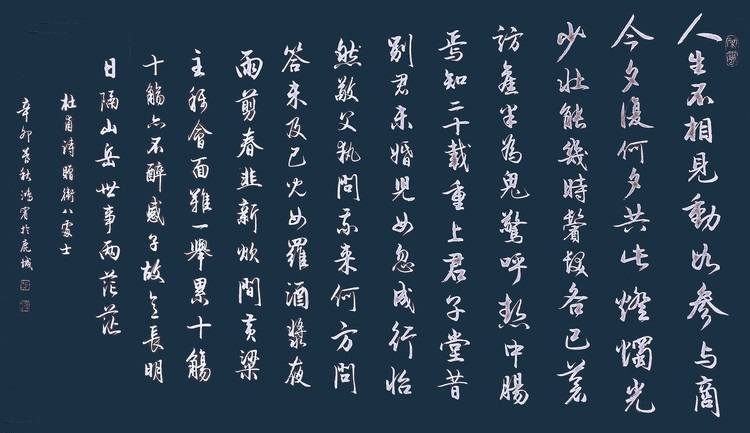 人生不相見動如參与商
今夕復何夕共此燈燭光
少壯能幾時鬢髮各已蒼
訪舊半為鬼驚呼熱中腸
焉知二十載重上君子堂昔
別君未婚兒女忽成行怡
然敬父執問我來何方問
答未及已兒女羅酒漿夜
雨剪春韭新炊間黃粱
主稱會面難一舉累十觴
十觴亦不醉感子故意長明
日隔山岳世事兩茫茫
杜甫詩贈衛八處士
辛卯暮秋鴻於鹿城